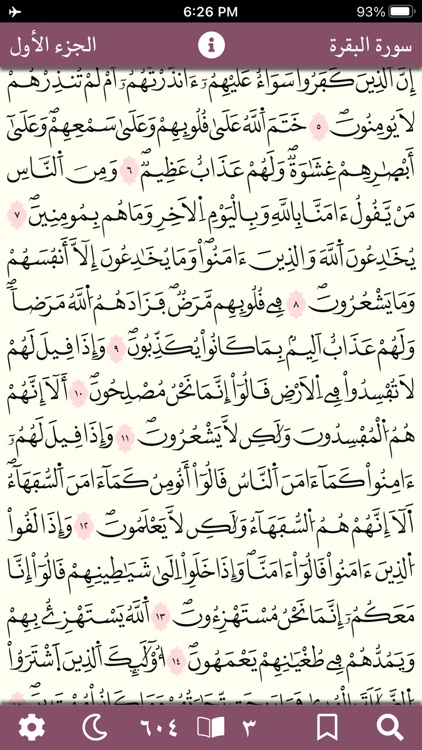 6:26 PM 93%
الجزء الأول سورة البقرة
إِنَّ اَ۬لذِينَ كَفَرُواْ سَوَآءٌ عَلَيْهِمُۥٓ ءَآنذَرْتَهُمُۥٓ أَمْ لَمْ تُنذِرْهُمْ
لَا يُومِنُونَۖ ٥ خَتَمَ اَ۬للَّهُ عَلَىٰ قُلُوبِهِمْ وَعَلَىٰ سَمْعِهِمْۖ وَعَلَىٰٓ
أَبْصٰ۪رِهِمْ غِشَٰوَةٌۖ وَلَهُمْ عَذَابٌ عَظِيمٌۖ ٦ وَمِنَ اَ۬لنَّاسِ
مَنْ يَّقُولُ ءَامَنَّا بِاللَّهِ وَبِالْيَوْمِ اِ۬لَاخِرِ وَمَا هُم بِمُومِنِينَۖ ٧
يُخَٰدِعُونَ اَ۬للَّهَ وَالذِينَ ءَامَنُواْۖ وَمَا يُخَٰدِعُونَ إِلَّآ أَنفُسَهُمْ
وَمَا يَشْعُرُونَۖ ٨ فِے قُلُوبِهِم مَّرَضٞ فَزَادَهُمُ اُ۬للَّهُ مَرَضاٗۖ
وَلَهُمْ عَذَابٌ اَلِيمُۢ بِمَا كَانُواْ يُكَذِّبُونَۖ ٩ وَإِذَا قِيلَ لَهُمْ
لَا تُفْسِدُواْ فِے اِ۬لَارْضِ قَالُوٓاْ إِنَّمَا نَحْنُ مُصْلِحُونَۖ ١٠ أَلَآ إِنَّهُمْ
هُمُ اُ۬لْمُفْسِدُونَ وَلَٰكِن لَّا يَشْعُرُونَۖ ١١ وَإِذَا قِيلَ لَهُمُۥٓ
ءَامِنُواْ كَمَآ ءَامَنَ اَ۬لنَّاسُ قَالُوٓاْ أَنُومِنُ كَمَآ ءَامَنَ اَ۬لسُّفَهَآءُۖ
اَ۬لَآ إِنَّهُمْ هُمُ اُ۬لسُّفَهَآءُ وَلَٰكِن لَّا يَعْلَمُونَۖ ١٢ وَإِذَا لَقُواْ
اُ۬لذِينَ ءَامَنُواْ قَالُوٓاْ ءَامَنَّاۖ وَإِذَا خَلَوِاْ اِلَىٰ شَيَٰطِينِهِمْ قَالُوٓاْ إِنَّا
مَعَكُمُۥٓ إِنَّمَا نَحْنُ مُسْتَهْزِءُونَۖ ١٣ اَ۬للَّهُ يَسْتَهْزِۓُ بِهِمْ
وَيَمُدُّهُمْ فِے طُغْيَٰنِهِمْ يَعْمَهُونَۖ ١٤ أُوْلَٰٓئِكَ اَ۬لذِينَ اَ۪شْتَرَوُاْ
٦٠٤ ٣